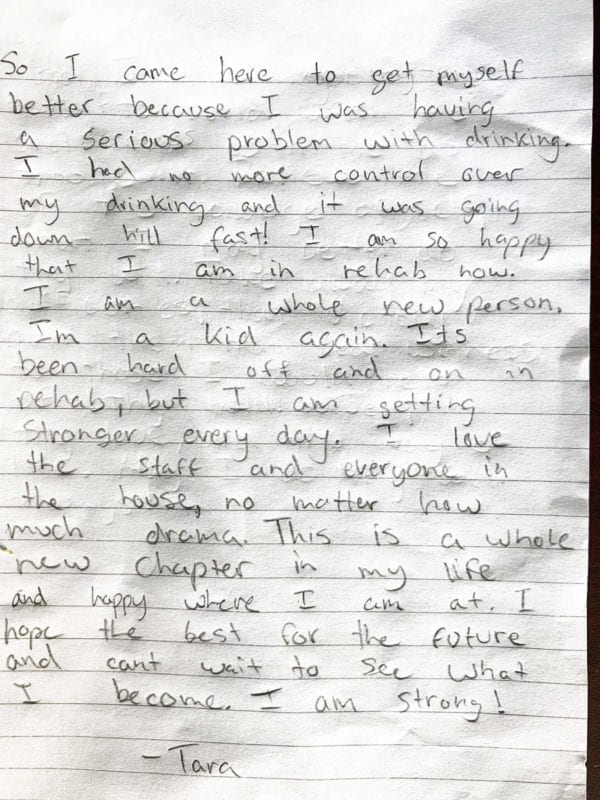 So I came here to get myself
better because I was having
a serious problem with drinking.
I had no more control over
my drinking and it was going
down hill fast! I am so happy
that I am in rehab now.
I am a whole new person.
Im a kid again. Its
been hard off and on in
rehab, but I am getting
stronger every day. I love
the staff and everyone in
the house, no matter how
much drama. This is a whole
new chapter in my life
and happy where I am at. I
hope the best for the future
and cant wait to see what
I become. I am strong!
-Tara